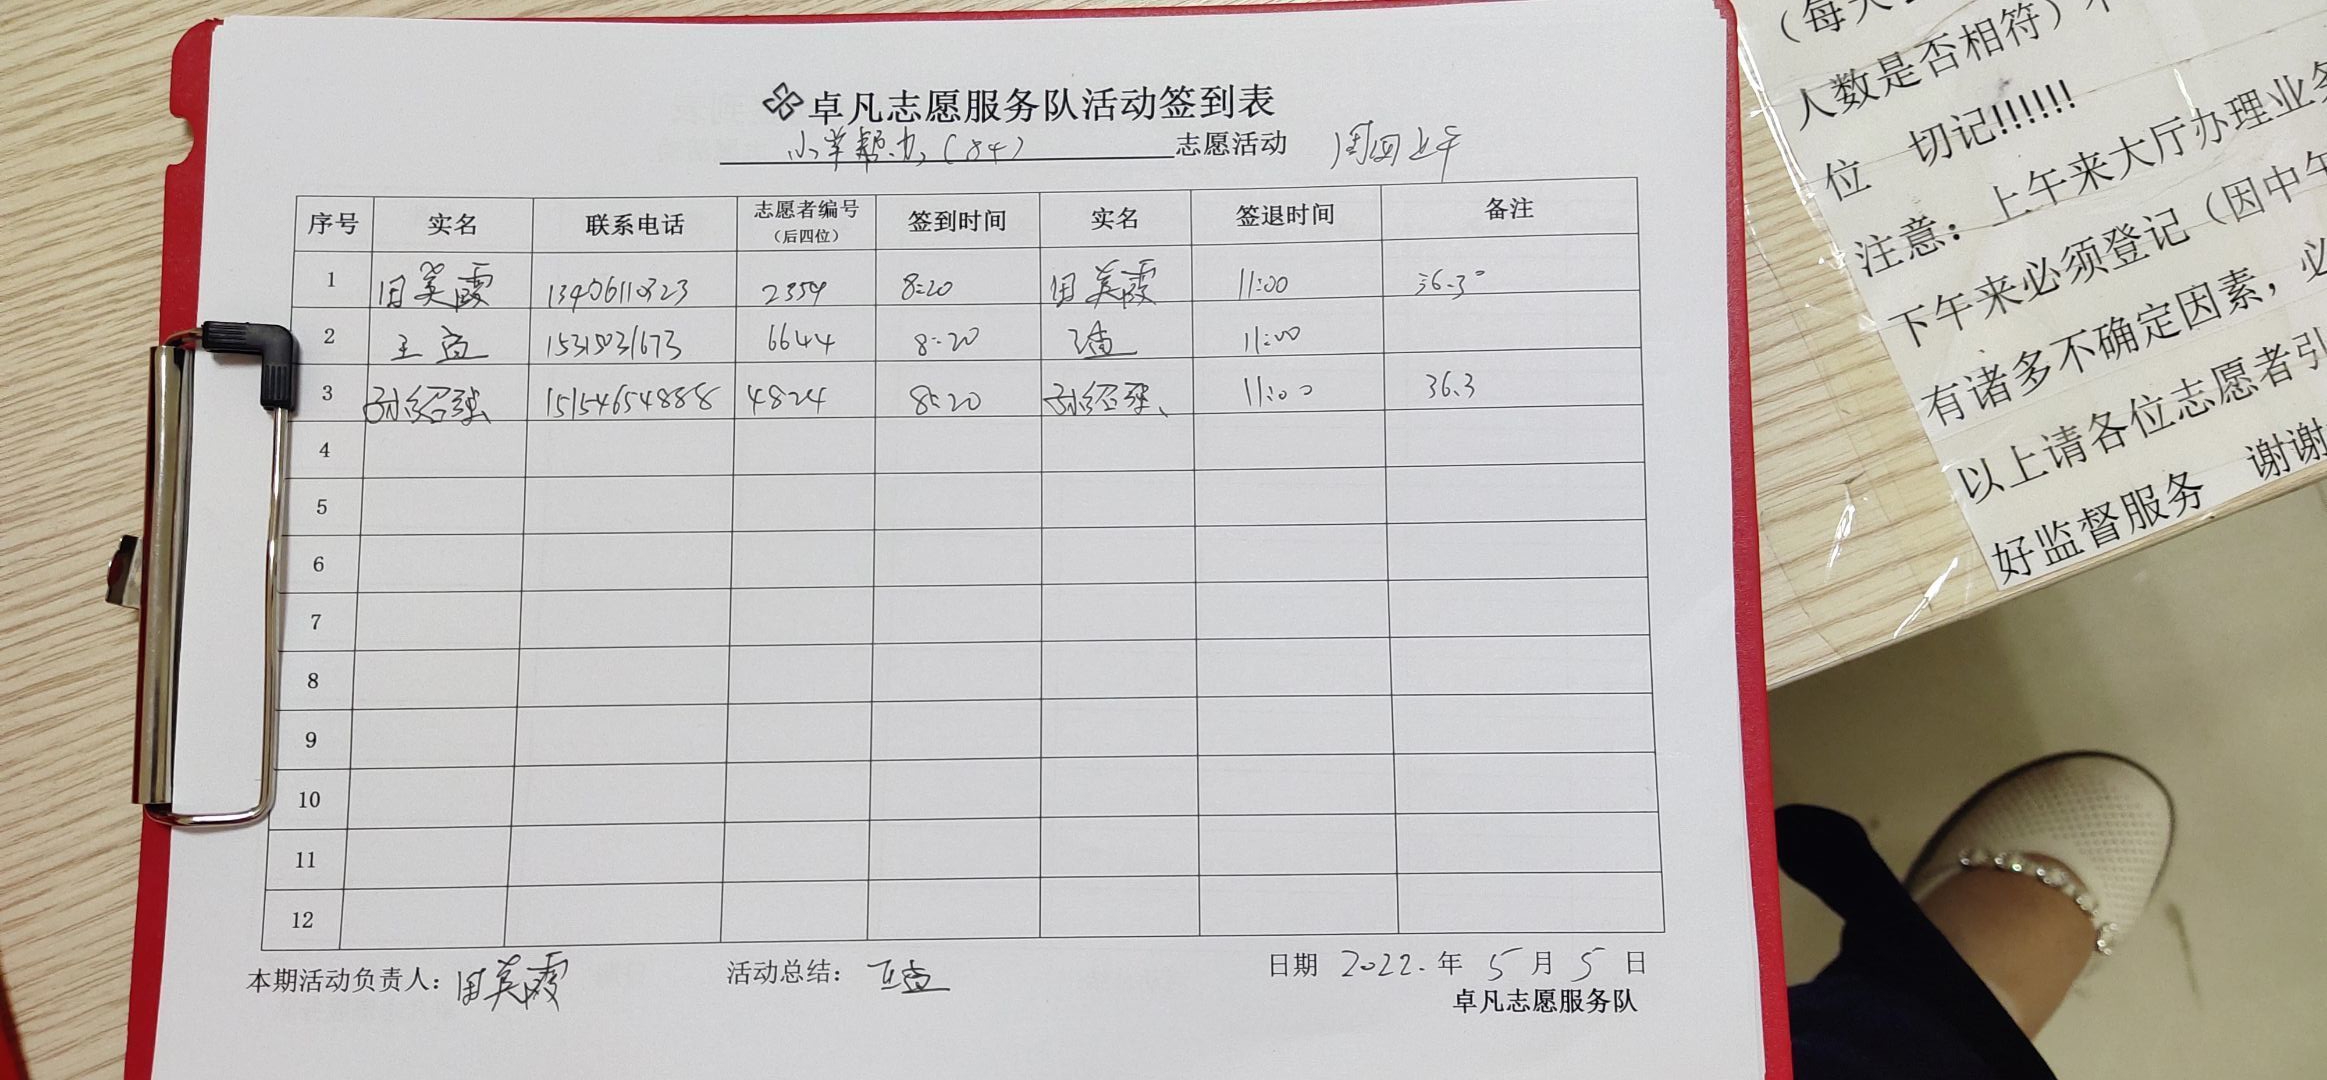 卓凡志愿服务队活动签到表
小苹帮办(84) 志愿活动 周四上午
序号 实名 联系电话 志愿者编号（后四位） 签到时间 实名 签退时间 备注
1 田美霞 13406110323 2354 8:20 田美霞 11:00 36.3°
2 王直 15315031673 6644 8:20 王直 11:00
3 孙绍强 15154654888 4824 8:20 孙绍强 11:00 36.3
4
5
6
7
8
9
10
11
12
本期活动负责人：田美霞 活动总结：王直 日期 2022. 年 5 月 5 日
卓凡志愿服务队
（每天
人数是否相符）
位 切记!!!!!!
注意：上午来大厅办理业务
下午来必须登记（因中午
有诸多不确定因素，必
以上请各位志愿者引
好监督服务 谢谢